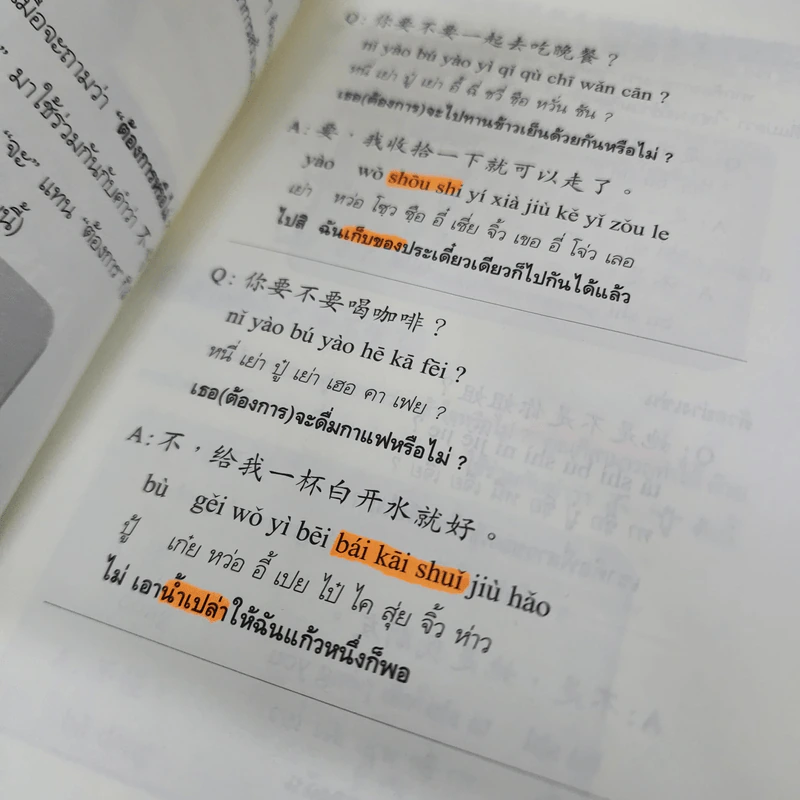 เมื่อจะถามว่า "ต้องการหรือไ
มาใช้ร่วมกันกับคำว่า 不
"จะ" แทน "ต้องการ"
นี้)
Q: 你要不要一起去吃晚餐？
nǐ yào bú yào yì qǐ qù chī wǎn cān ?
หนี่ เย่า ปู๋ เย่า อี้ ฉี่ ชวี่ ชือ หวั่น ชัน ?
เธอ(ต้องการ)จะไปทานข้าวเย็นด้วยกันหรือไม่ ?
A: 要，我收拾一下就可以走了。
yào wǒ shōu shí yí xià jiù kě yǐ zǒu le
เย่า หว่อ โชว ชือ อี๋ เซี่ย จิ้ว เขอ อี่ โจ่ว เลอ
ไปสิ ฉันเก็บของประเดี๋ยวเดียวก็ไปกันได้แล้ว
Q: 你要不要喝咖啡？
nǐ yào bú yào hē kā fēi ?
หนี่ เย่า ปู๋ เย่า เฮอ คา เฟย ?
เธอ(ต้องการ)จะดื่มกาแฟหรือไม่ ?
A: 不，给我一杯白开水就好。
bù gěi wǒ yì bēi bái kāi shuǐ jiù hǎo
ปู้ เก๋ย หว่อ อี้ เปย ไป๋ ไค สุ่ย จิ้ว ห่าว
ไม่ เอาน้ำเปล่าให้ฉันแก้วหนึ่งก็พอ